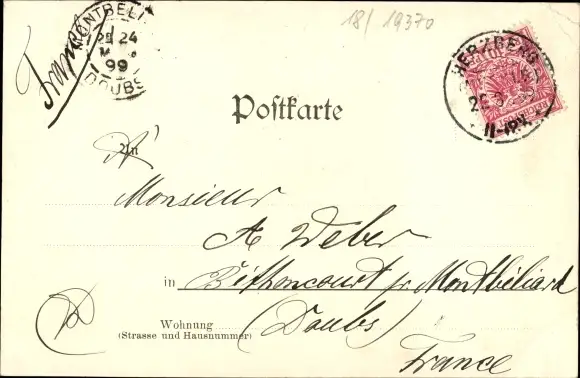 18/ 19370
MONTBELI
24
99
DOUBS
HERZBERG
11-12V.
Postkarte
An
Monsieur
A Weber
in Béthoncourt pr. Montbéliard
Wohnung
(Strasse und Hausnummer)
(Doubs)
France